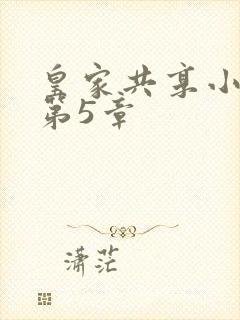 皇家共享小
第5章
潇茫